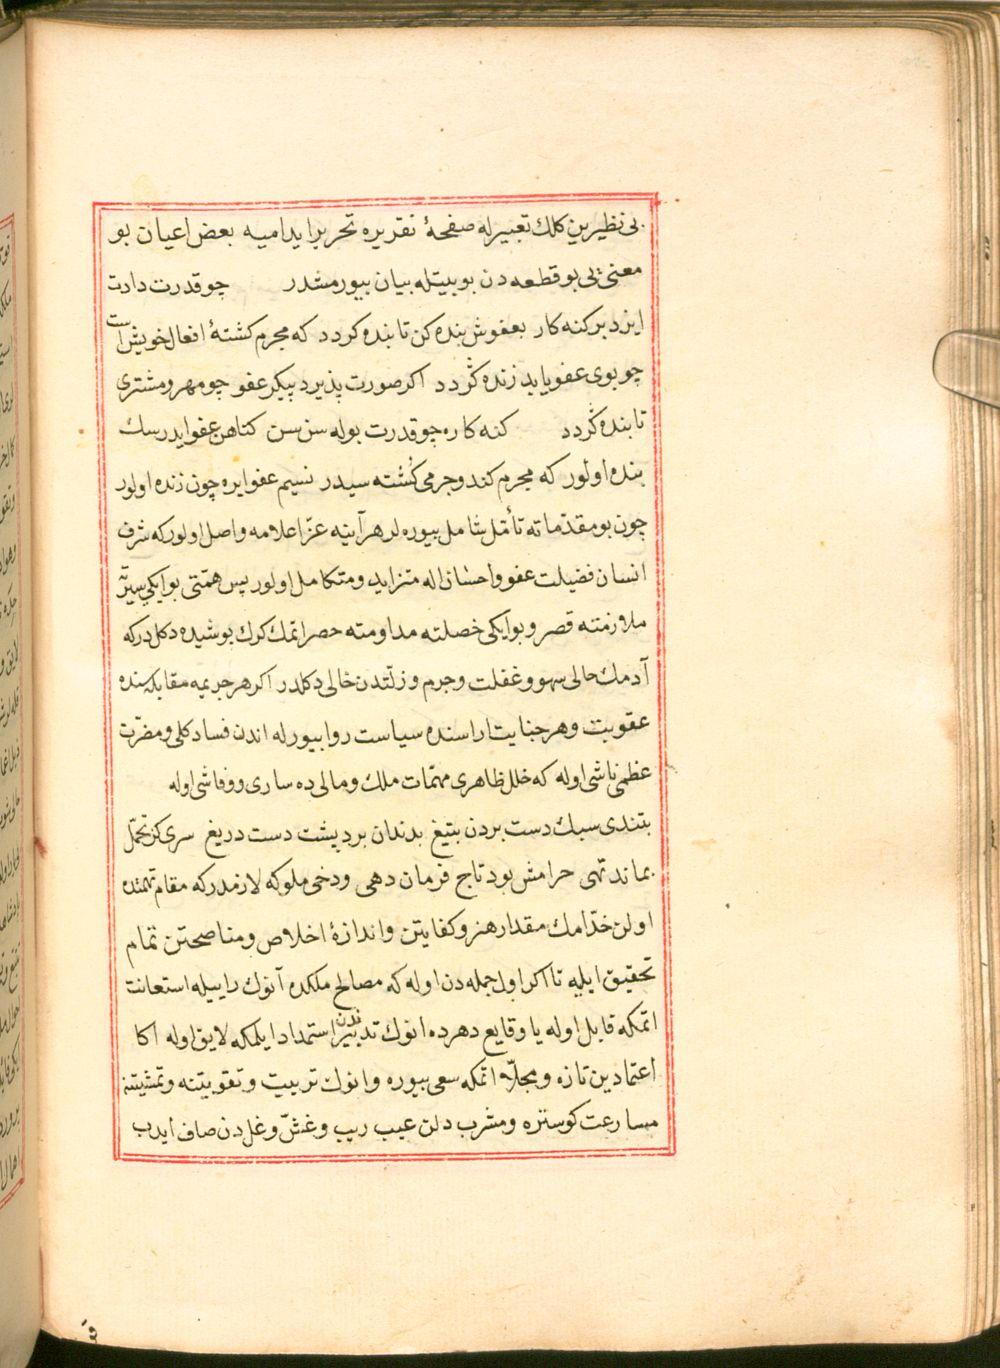 بی نظیرین کلك تعبیرله صفحهٔ تقریره تحریر ایدامیه بعض اعیان بو
معنی یی بو قطعه دن بو بیتله بیان بیورمشدر چو قدرت دادت
ایزد بر کنه کار بعفوش بنده کن تا بنده کردد که مجرم کشتهٔ افعال خویش است
چو بوی عفو یابد زنده کردد اکر صورت پذیرد پیکر عفو چو مهر و مشتری
تابنده کردد کنه کاره چو قدرت بوله سن سن کناهن عفو ایدرسك
بنده اولور که مجرم کند و جرمی کشته سیدر نسیم عفو ایره چون زنده اولور
چون بو مقدماته تأمل شامل بیوره لر هر آینه عز اعلامه واصل اولور که شرف
انسان فضیلت عفو و احسان اله متزاید و متکامل اولور پس همتی بو ایکی سیرت
ملازمته قصر و بو ایکی خصلته مداومته حصر اتمك کرك پوشیده دکل در که
آدمك حالی سهو و غفلت و جرم و زلتدن خالی دکلدر اکر هر جریمه مقابله سنده
عقوبت و هر جنایت ازاسنده سیاست روا بیورله اندن فساد کلی و مضرت
عظمی ناشی اوله که خلل ظاهری مهمات ملك و مالی ده ساری و فاشی اوله
بتندی سبك دست بردن بتیغ بدندان برد پشت دست دریغ سری کز تحمل
بماند تهی حرامش بود تاج فرمان دهی و دخی ملوکه لازمدر که مقام تهمتده
اولن خدامك مقدار هنر و کفایتن و اندازهٔ اخلاص و مناصحتن تمام
تحقیق ایلیه تا اکر اول جمله دن اوله که مصالح ملکده آنوك راییله استعانت
اتمکه قابل اوله یا وقایع دهرده انوك تدبیرندن استمداد ایلمکه لایق اوله اکا
اعتمادین تازه و مجلا اتمکه سعی بیوره و انوك تربیت و تقویتنه و تمشیتنه
مسارعت کوستره و مشرب دلن عیب ریب و غش و غل دن صاف ایدب